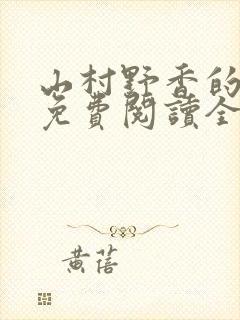 山村野香的
免費閱讀全
黃蓓